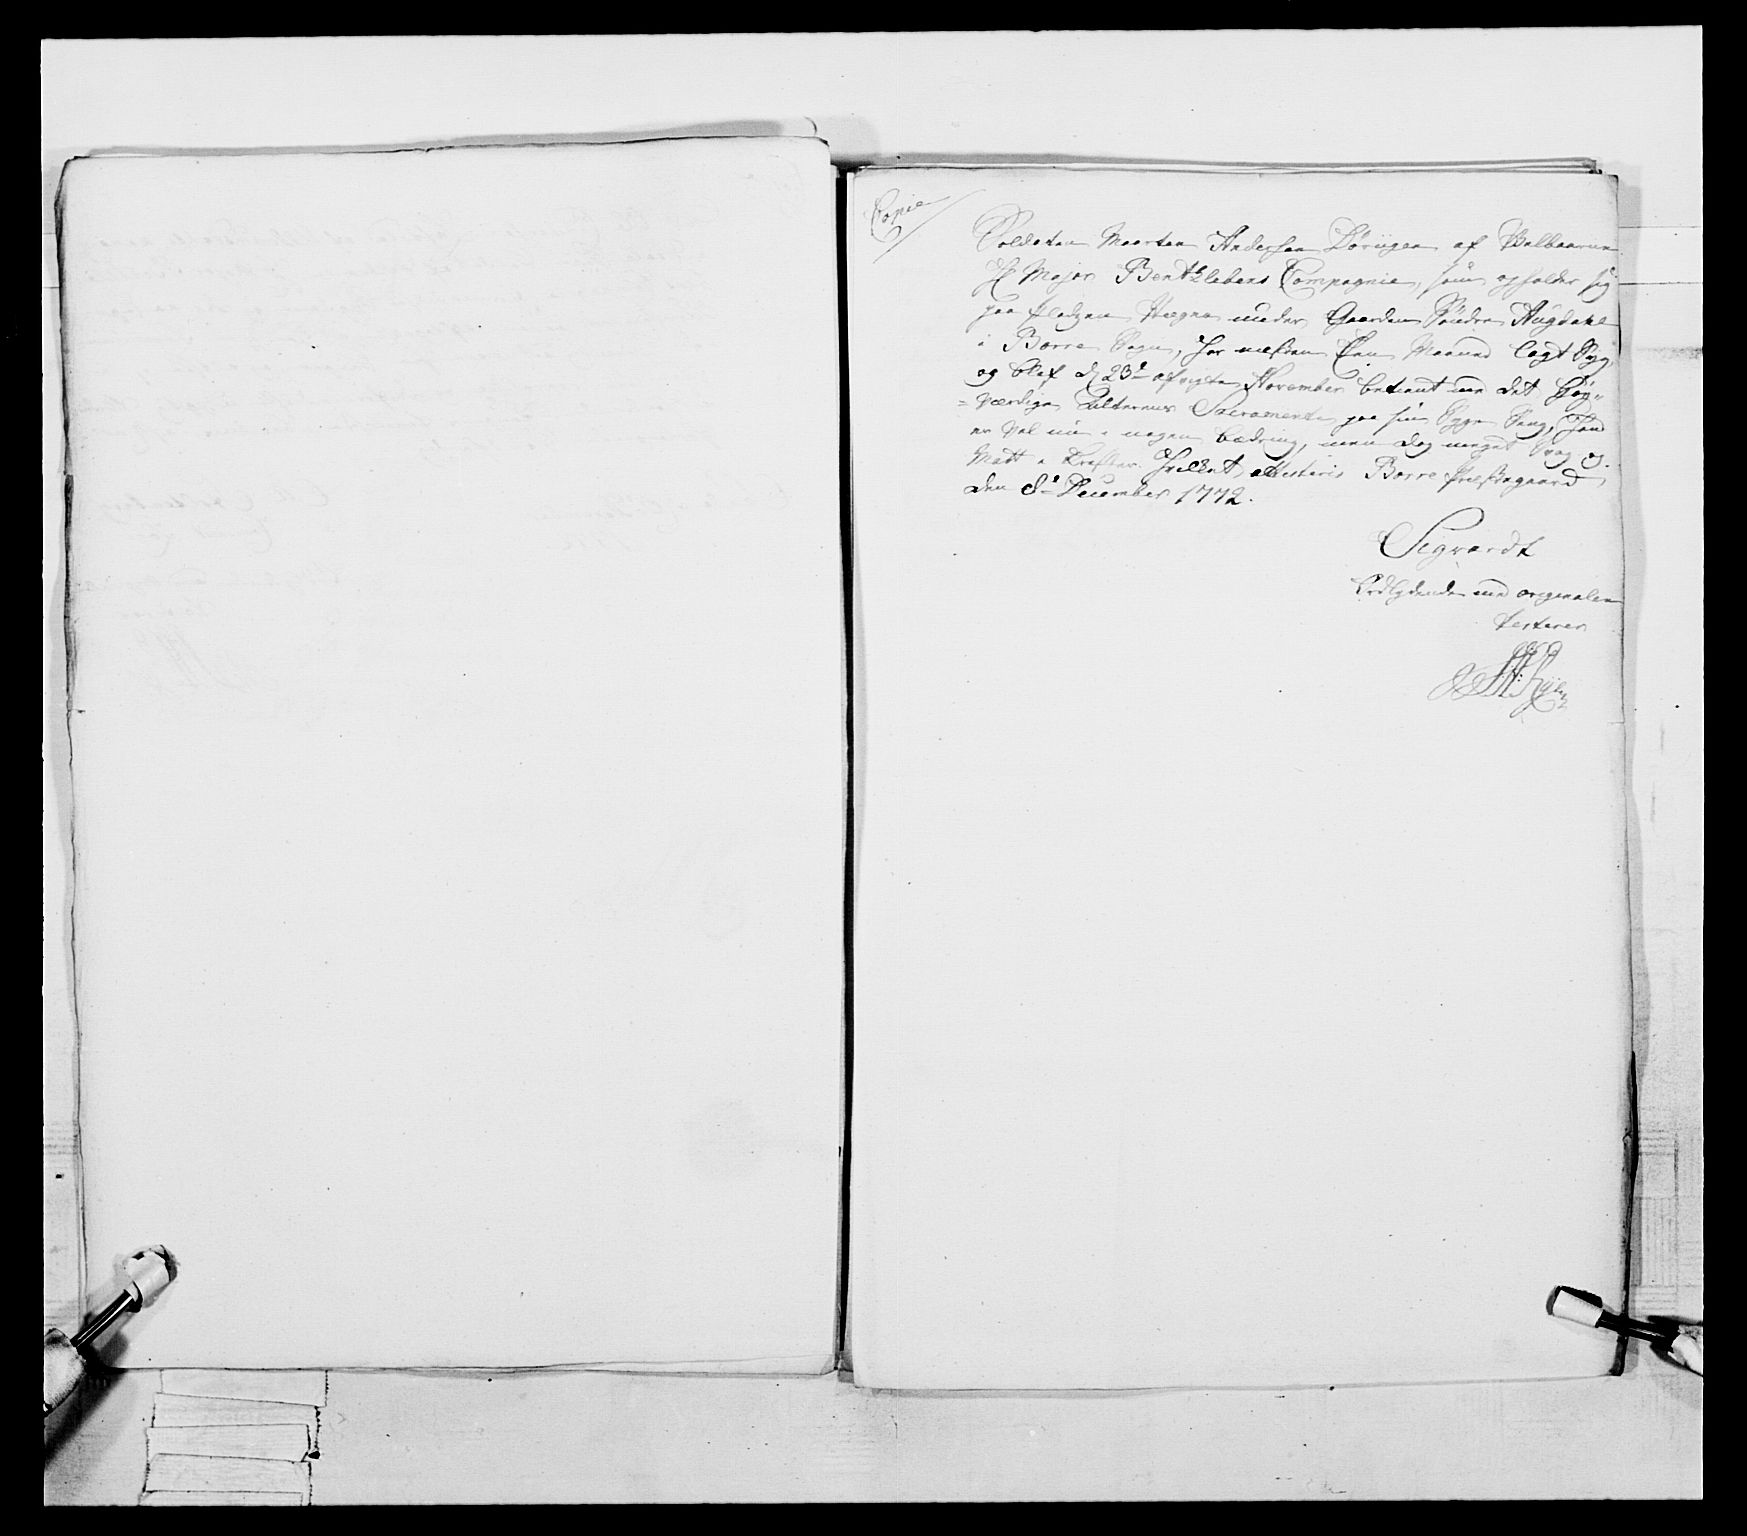 Copie
Soldaten Maarten Andersen Løvigen af
Hr Major Bentzlebens Compagnie, som opholder sig
paa Pladzen under Gaarden Søndre Augdahl
i Borre Sogn, har næsten Een Maaned lagt Syg,
og blef d 23de afvigte November betient med det Høy-
=værdige Alterens Sacramente paa sin Syge Seng, Hand
er vel nu i nogen bædring, men dog meget Svag og
Matt i Kræfter. Hvilket attesteris Borre Præstegaard
den 8de December 1772.
Sigvardt
Ordlydende med originalen
testerer